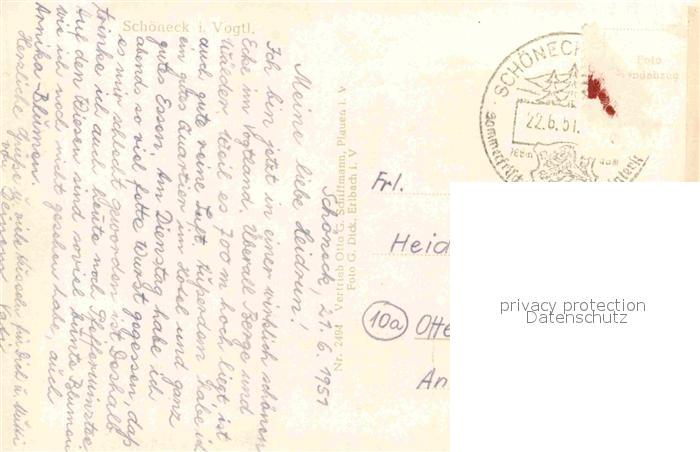 Schöneck i. Vogtl.
Schöneck, 21. 6. 1951
Meine liebe Heidrun!
Ich bin jetzt in einer wirklich schönen
Ecke im Vogtland. Überall Berge und
Wälder. Weil es 700 m hoch liegt ist
auch gute reine Luft. Außerdem habe ich
ein gutes Quartier im Hotel und ganz
gutes Essen. Am Dienstag habe ich
abends so viel fette Wurst gegessen, daß
es mir schlecht geworden ist. Deshalb
trinke ich auch heute noch Pfefferminztee.
Auf den Wiesen sind soviel bunte Blumen
wie ich noch nicht gesehen habe, auch
Arnika Blumen.
Herzliche Grüße u. viele Küssen für Dich u. Mutti
von Deinem Vati
Nr. 2494 Vertrieb Otto G. Schiffmann, Plauen i. V
Foto G. Dick, Erlbach i. V
SCHÖNECK
22.6.51.
Sommerfrische
Foto
Handabzug
Frl.
Heid
(10a) Otte
An
privacy protection
Datenschutz